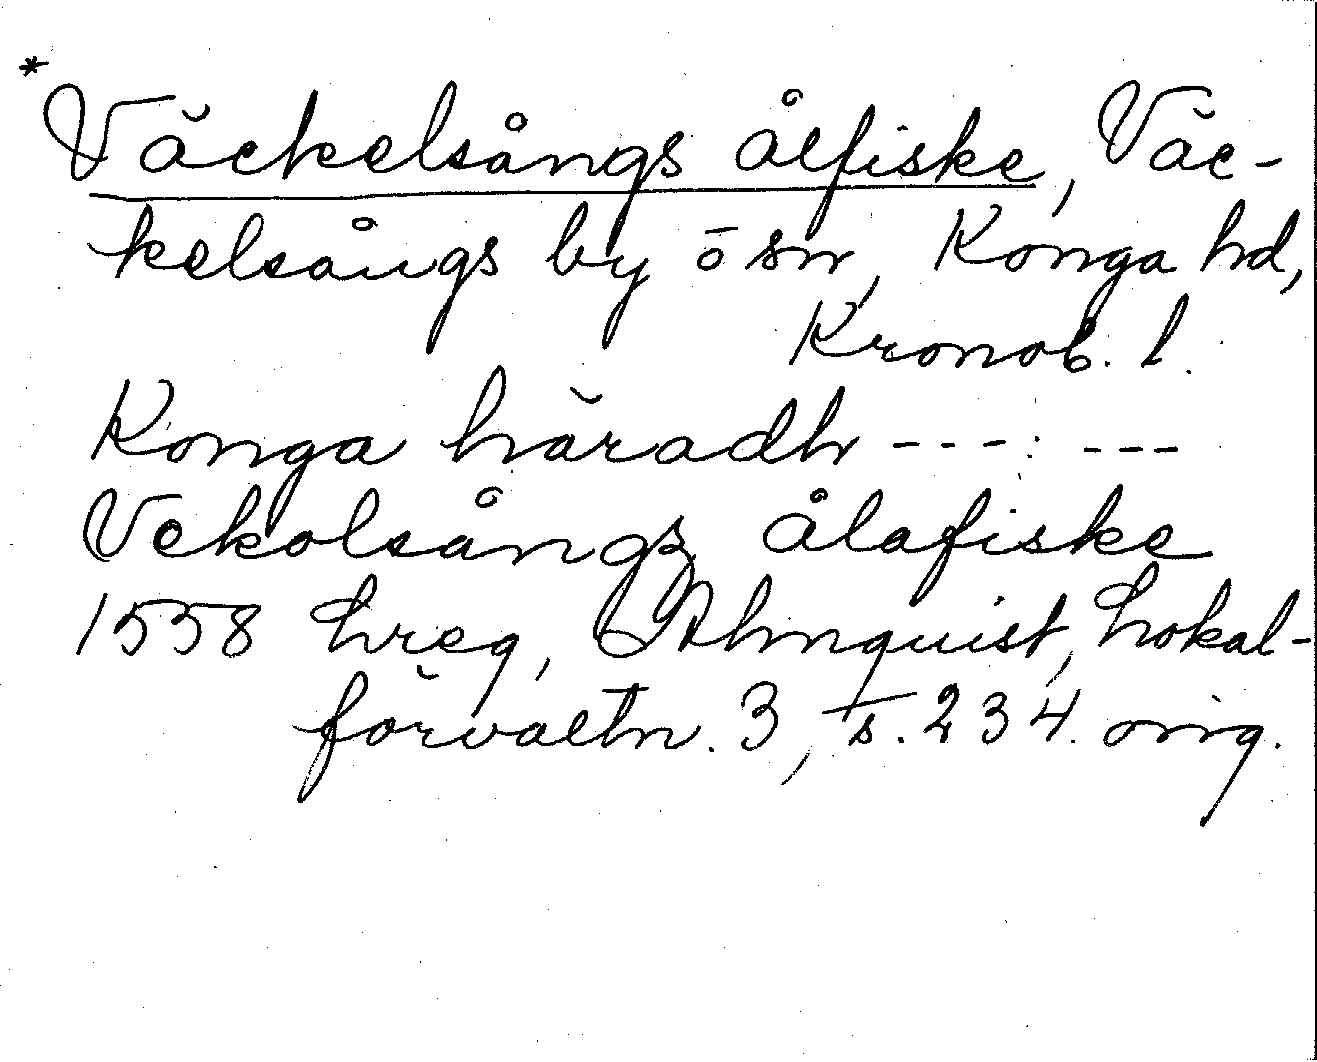 *Väckelsångs ålfiske, Väc-
kelsångs by o sn, Konga hd,
Kronob. l.
Konga häradh --- : ---
Vekolsångs ålafiske
1558 hreg, Almquist, Lokal-
förvaltn. 3, s. 234. orig.